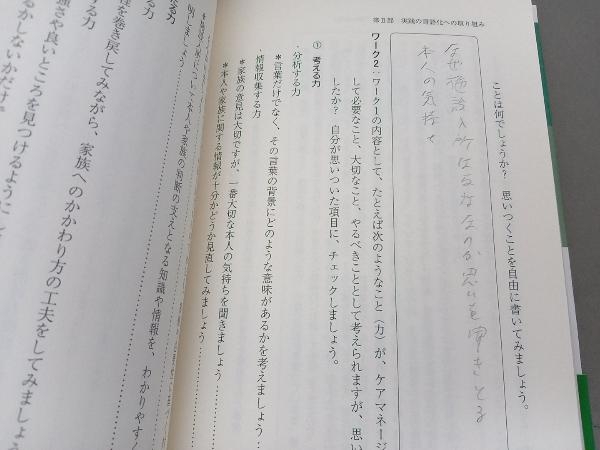 第Ⅱ部 実践の言語化への取り組み
ことは何でしょうか? 思いつくことを自由に書いてみましょう。
なぜ施設入所になるのか思いを聞きとる
本人の気持ち
ワーク2:ワーク1の内容として、たとえば次のようなこと(力)が、ケアマネージ
して必要なこと、大切なこと、やるべきこととして考えられますが、思い
したか? 自分が思いついた項目に、チェックしましょう。
① 考える力
・分析する力
*言葉だけでなく、その言葉の背景にどのような意味があるかを考えましょう…
・情報収集する力
*家族の意見は大切ですが、一番大切な本人の気持ちを聞きましょう…
*本人や家族に関する情報が十分かどうか見直してみましょう…
本人や家族の判断の支えとなる知識や情報を、わかりやすく
なる力
性を巻き戻してみながら、家族へのかかわり方の工夫をしてみましょう
る力
強さや良いところを見つけるように
るかしないかだけ